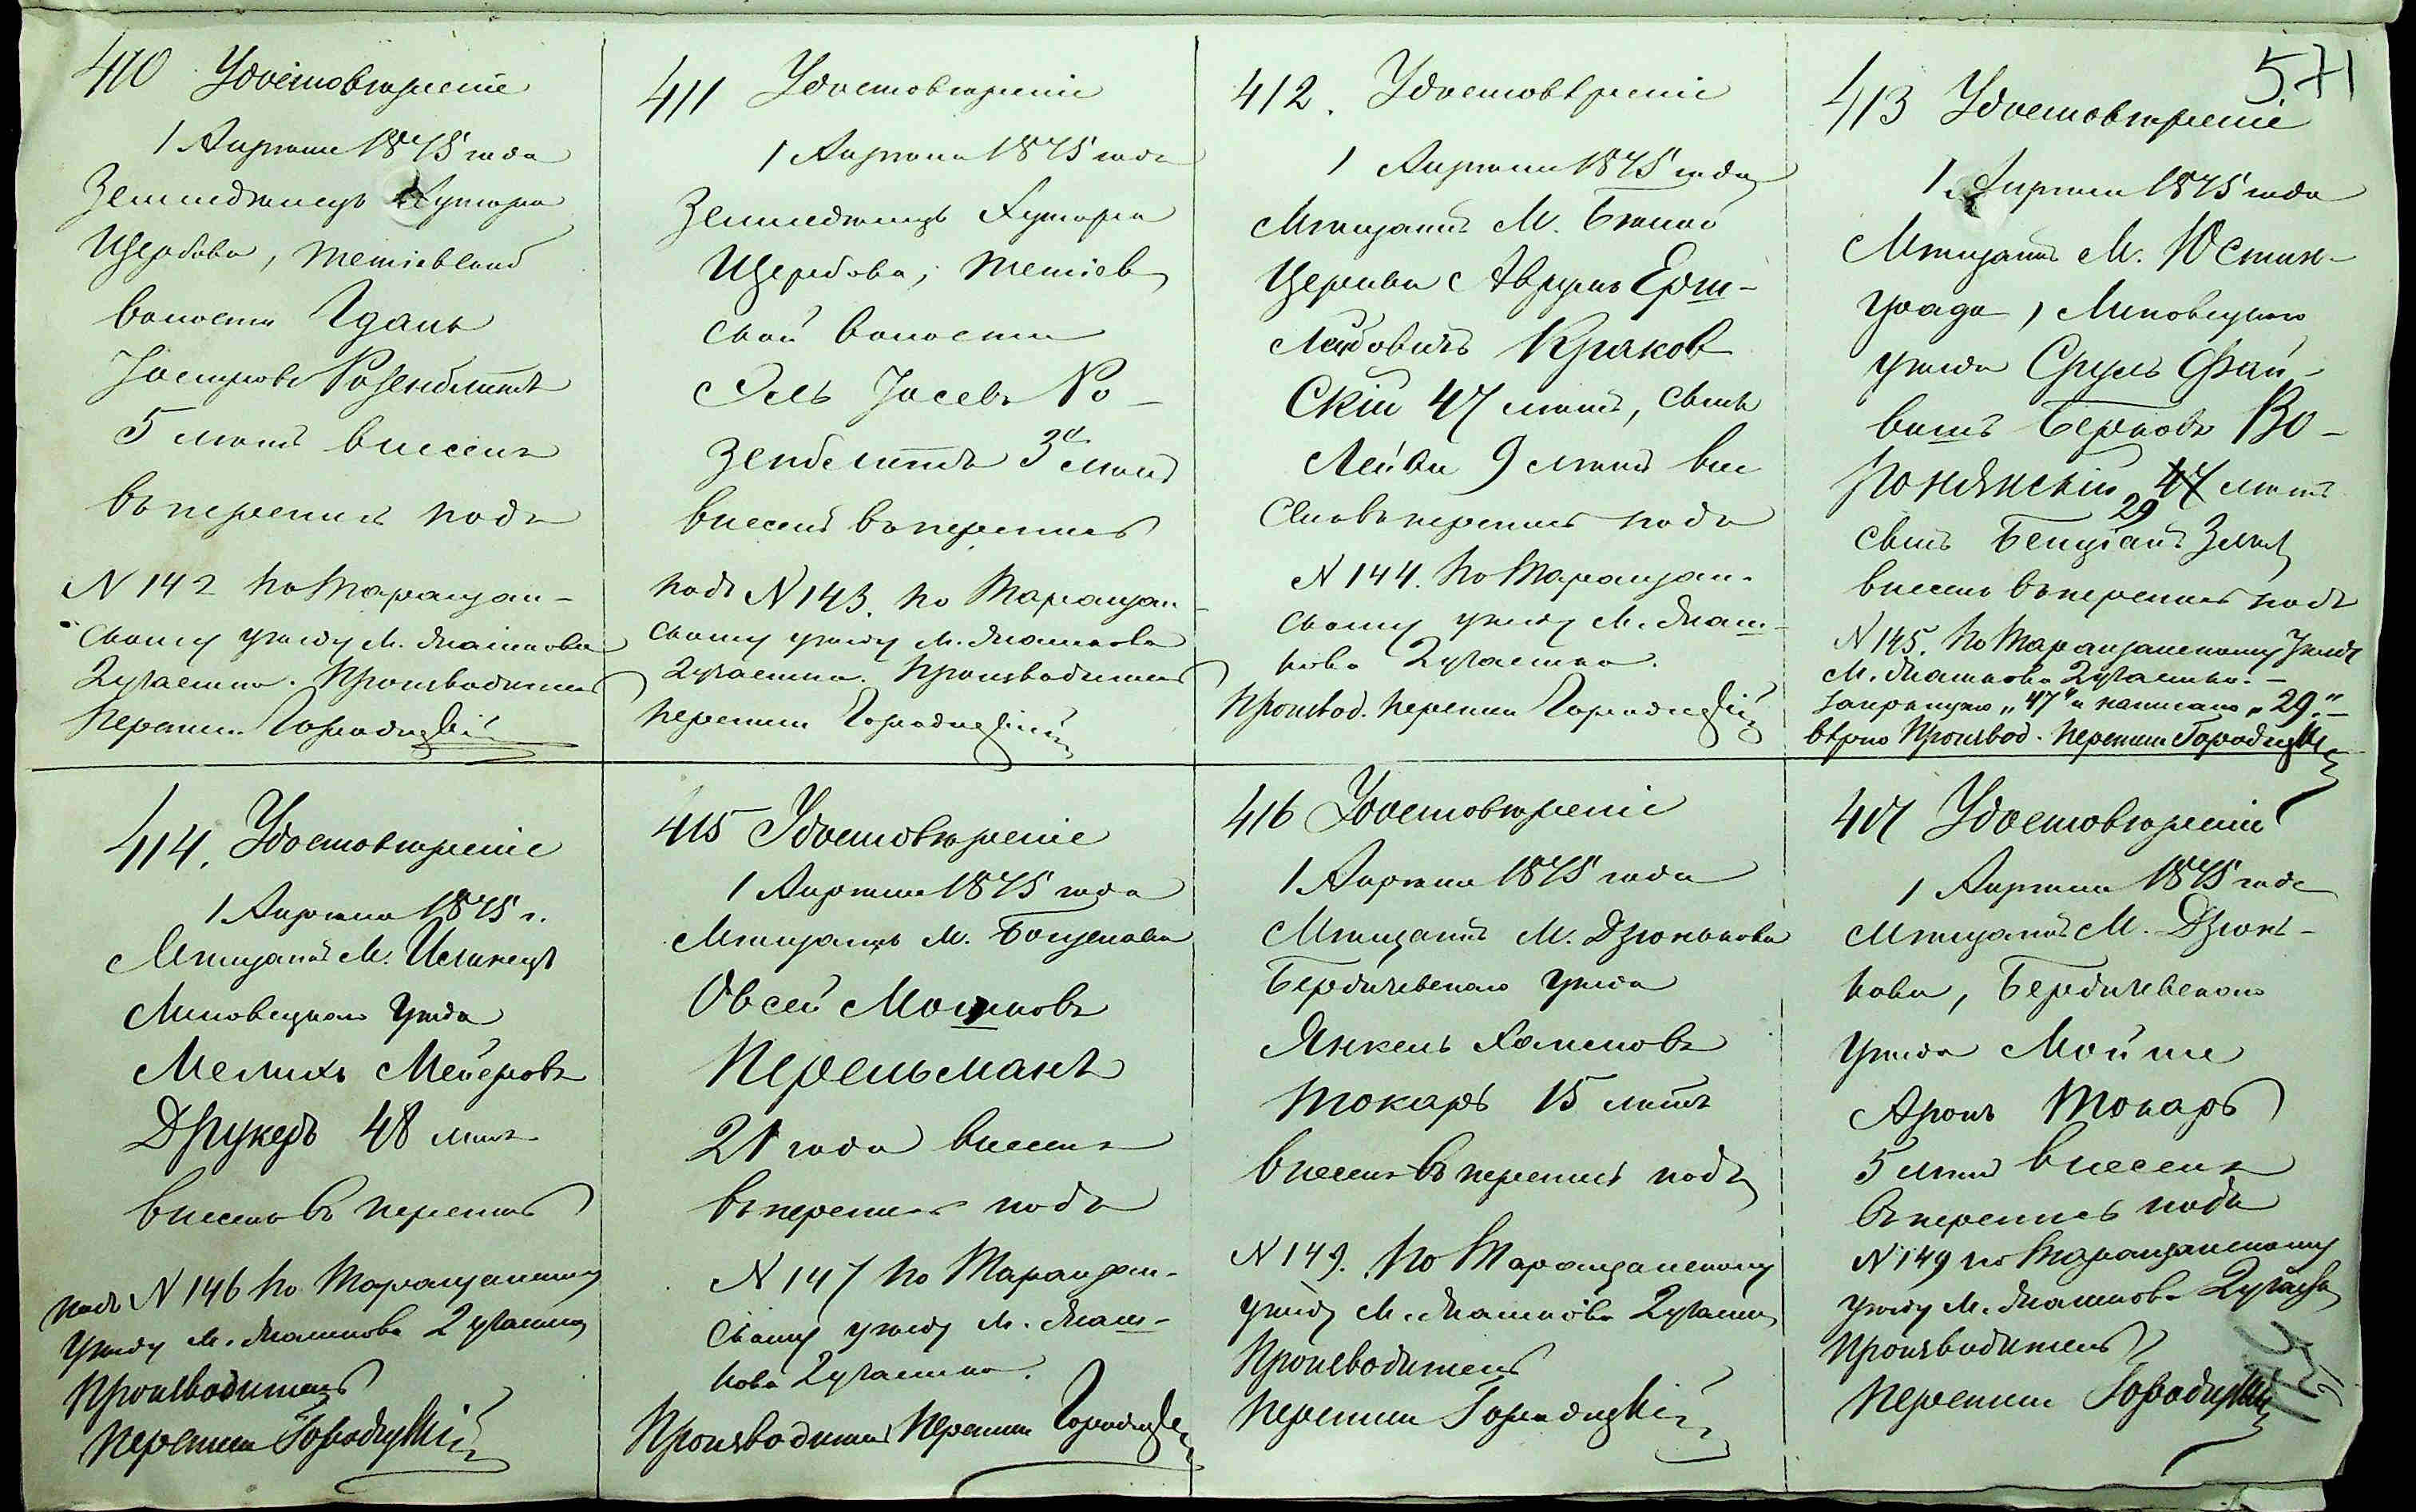 571
410 Удостовѣреніе
1 Апрѣля 1875 года
Земледѣлецъ Хутора
Щербова, Тетіевской
волости Іданъ
Іосиповъ Розенблитъ
5 лѣтъ внесенъ
въ перепись подъ
N 142 по Таращан-
скому уѣзду М. Пяшкова
2 участка. Производитель
Переписи Городецкій
411 Удостовѣреніе
1 Апрѣля 1875 года
Земледѣлецъ Хутора
Щербова, Тетіев
ской волости
Эль Іосевъ Ро-
зенблитъ 3х лѣтъ
внесенъ въ перепись
подъ N 143. по Таращан-
скому уѣзду М.
2 участка. Производитель
переписи Городецкій
412. Удостовѣреніе
1 Апрѣля 1875 года
Мѣщанинъ М. Бѣлой
Церкви Аврумъ Ерш-
Лейбовичъ Краков
скій 47 лѣтъ, сынъ
Лейви 9 лѣтъ вне
сенъ въ перепись подъ
N 144. по Таращан-
скому уѣзду М.
2 участка.
Производ. переписи Городецкій
413 Удостовѣреніе
1 Апрѣля 1875 года
Мѣщанинъ М. Юстин-
града, Липовецкого
уѣзда Сруль Фай-
вишъ Берковъ Во-
47 лѣтъ
29
сынъ
внесенъ въ перепись подъ
N 145. по Таращанскому уѣзду
М. 2 участка. -
зачеркнуто „47" и написано „29." -
вѣрно Производ. переписи Городецкій
414. Удостовѣреніе
1 Апрѣля 1875 г.
Мѣщанинъ М. Илинецъ
Липовецкаго уѣзда
Мелихъ Мейеровъ
Друкеръ 48 лѣтъ
внесенъ въ перепись
подъ N 146 по Таращанскому
уѣзду М. 2 участка
Производитель
переписи Городецкій
415 Удостовѣреніе
1 Апрѣля 1875 года
Мѣщанинъ М.
Овсей Мошковъ
Перельманъ
21 года внесенъ
въ перепись подъ
N 147 по Таращан-
скому уѣзду М.
2 участка.
Производитель переписи Городецкій
416 Удостовѣреніе
1 Апрѣля 1875 года
Мѣщанинъ М. Дзюнькова
Бердичевскаго уѣзда
Янкель Хаимовъ
Токаръ 15 лѣтъ
внесенъ въ перепись подъ
N 149. по Таращанскому
уѣзду М. 2 участка
Производитель
переписи Городецкій
417 Удостовѣреніе
1 Апрѣля 1875 года
Мѣщанинъ М. Дзюнь-
кова, Бердичевскаго
уѣзда Мойше
Аронъ Токаръ
5 лѣтъ внесенъ
въ перепись подъ
N 149 по Таращанскому
уѣзду М. 2 участка
Производитель
переписи Городецкій